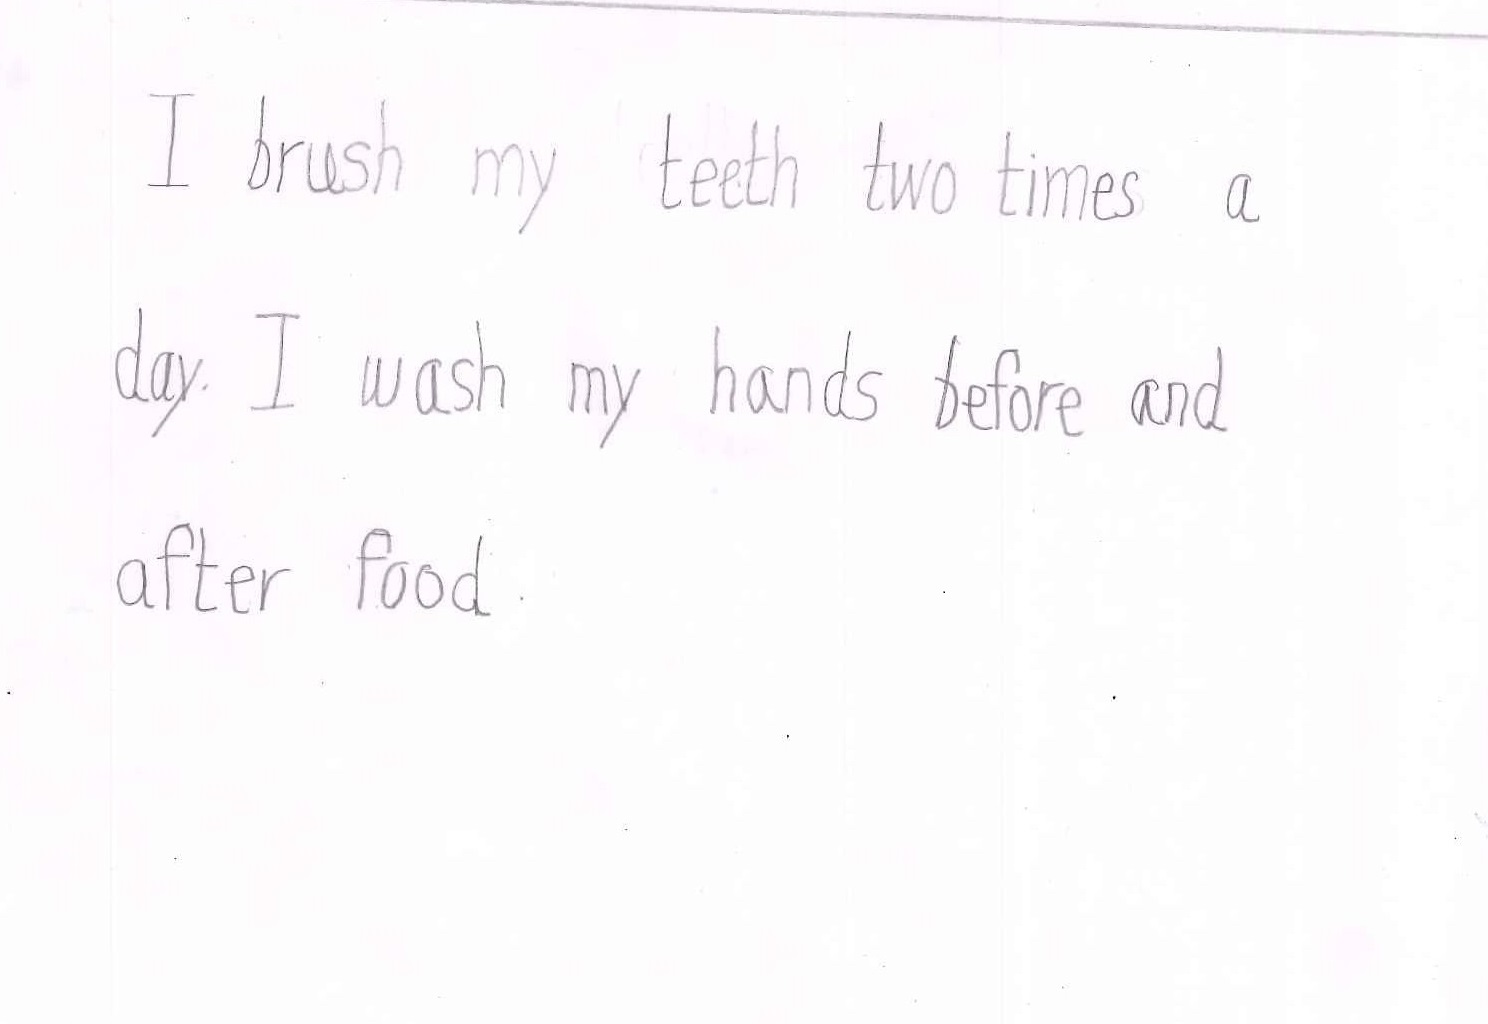 I brush my teeth two times a
day. I wash my hands before and
after food.